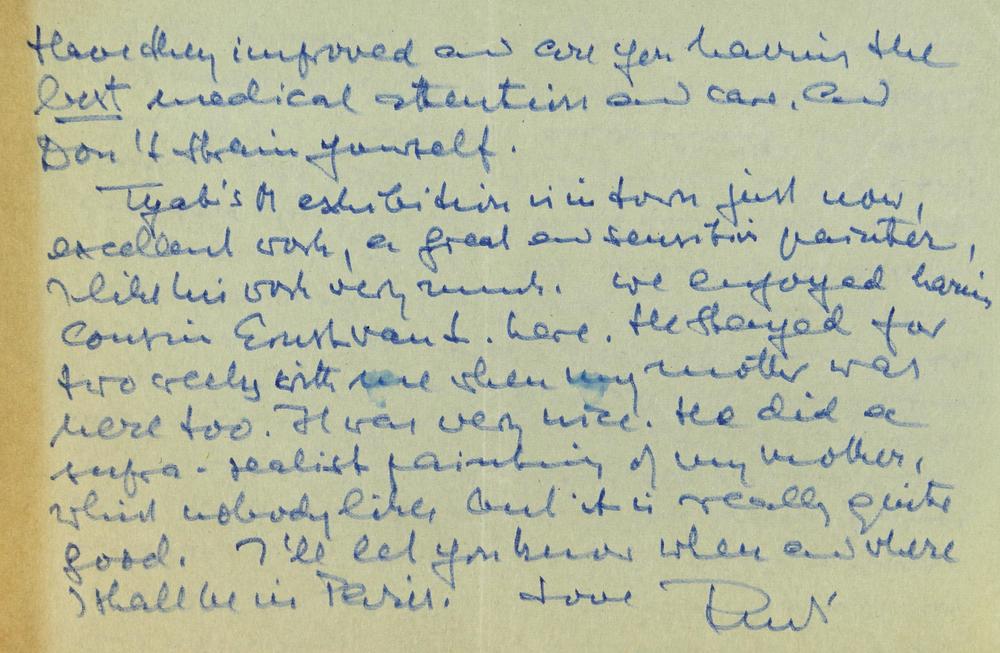 Have they improved and are you having the
best medical attention and care. And
Don't strain yourself.
Tyabi's exhibition is in town just now,
excellent work, a great and sensitive painter,
I like his work very much. We enjoyed having
Cousin Ernst van L. here. He stayed for
two weeks with me when my mother was
here too. It was very nice. He did a
supra-realist painting of my mother,
which nobody likes but it is really quite
good. I'll let you know when and where
I shall be in Paris. Love